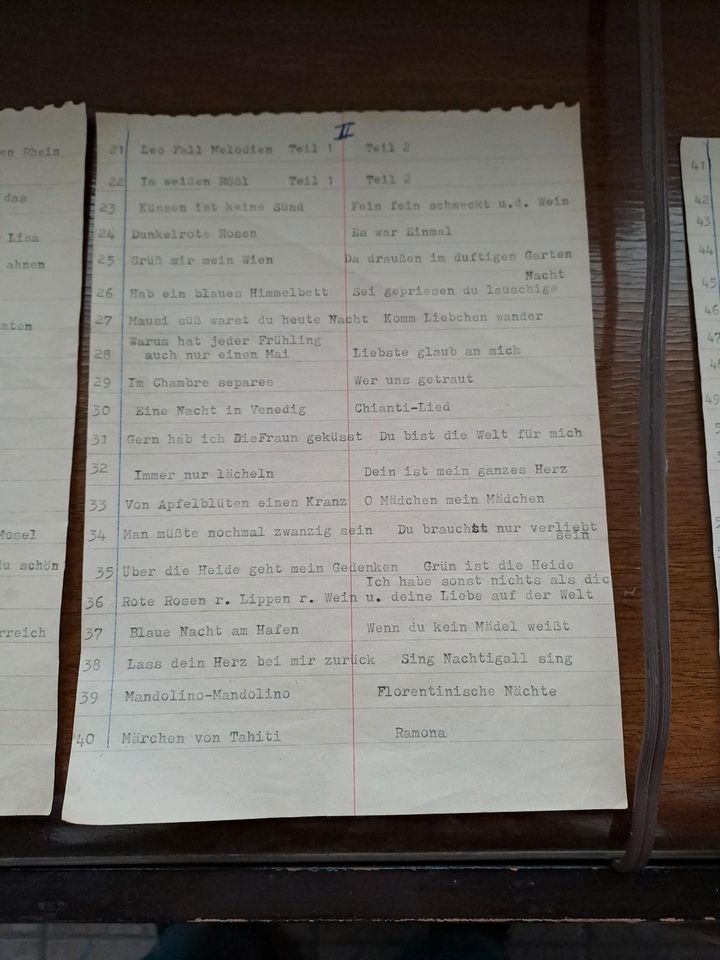 II
21 Leo Fall Melodien Teil 1 Teil 2
22 Im weißen Rößl Teil 1 Teil 2
23 Küssen ist keine Sünd Fein fein schmeckt u.d. Wein
24 Dunkelrote Rosen Es war Einmal
25 Grüß mir mein Wien Da draußen im duftigen Garten
Nacht
26 Hab ein blaues Himmelbett Sei gepriesen du lauschige
27 Mausi süß warst du heute Nacht Komm Liebchen wander
Warum hat jeder Frühling
28 auch nur einen Mai Liebste glaub an mich
29 Im Chambre separee Wer uns getraut
30 Eine Nacht in Venedig Chianti-Lied
31 Gern hab ich DieFraun geküsst Du bist die Welt für mich
32 Immer nur lächeln Dein ist mein ganzes Herz
33 Von Apfelblüten einen Kranz O Mädchen mein Mädchen
34 Man müßte nochmal zwanzig sein Du brauchst nur verliebt
sein
35 Über die Heide geht mein Gedenken Grün ist die Heide
Ich habe sonst nichts als dic
36 Rote Rosen r. Lippen r. Wein u. deine Liebe auf der Welt
37 Blaue Nacht am Hafen Wenn du kein Mädel weißt
38 Lass dein Herz bei mir zurück Sing Nachtigall sing
39 Mandolino-Mandolino Florentinische Nächte
40 Märchen von Tahiti Ramona
en Rhein
das
Lisa
ahnen
aten
Mosel
du schön
rreich
41
42
43
44
45
46
47
48
49